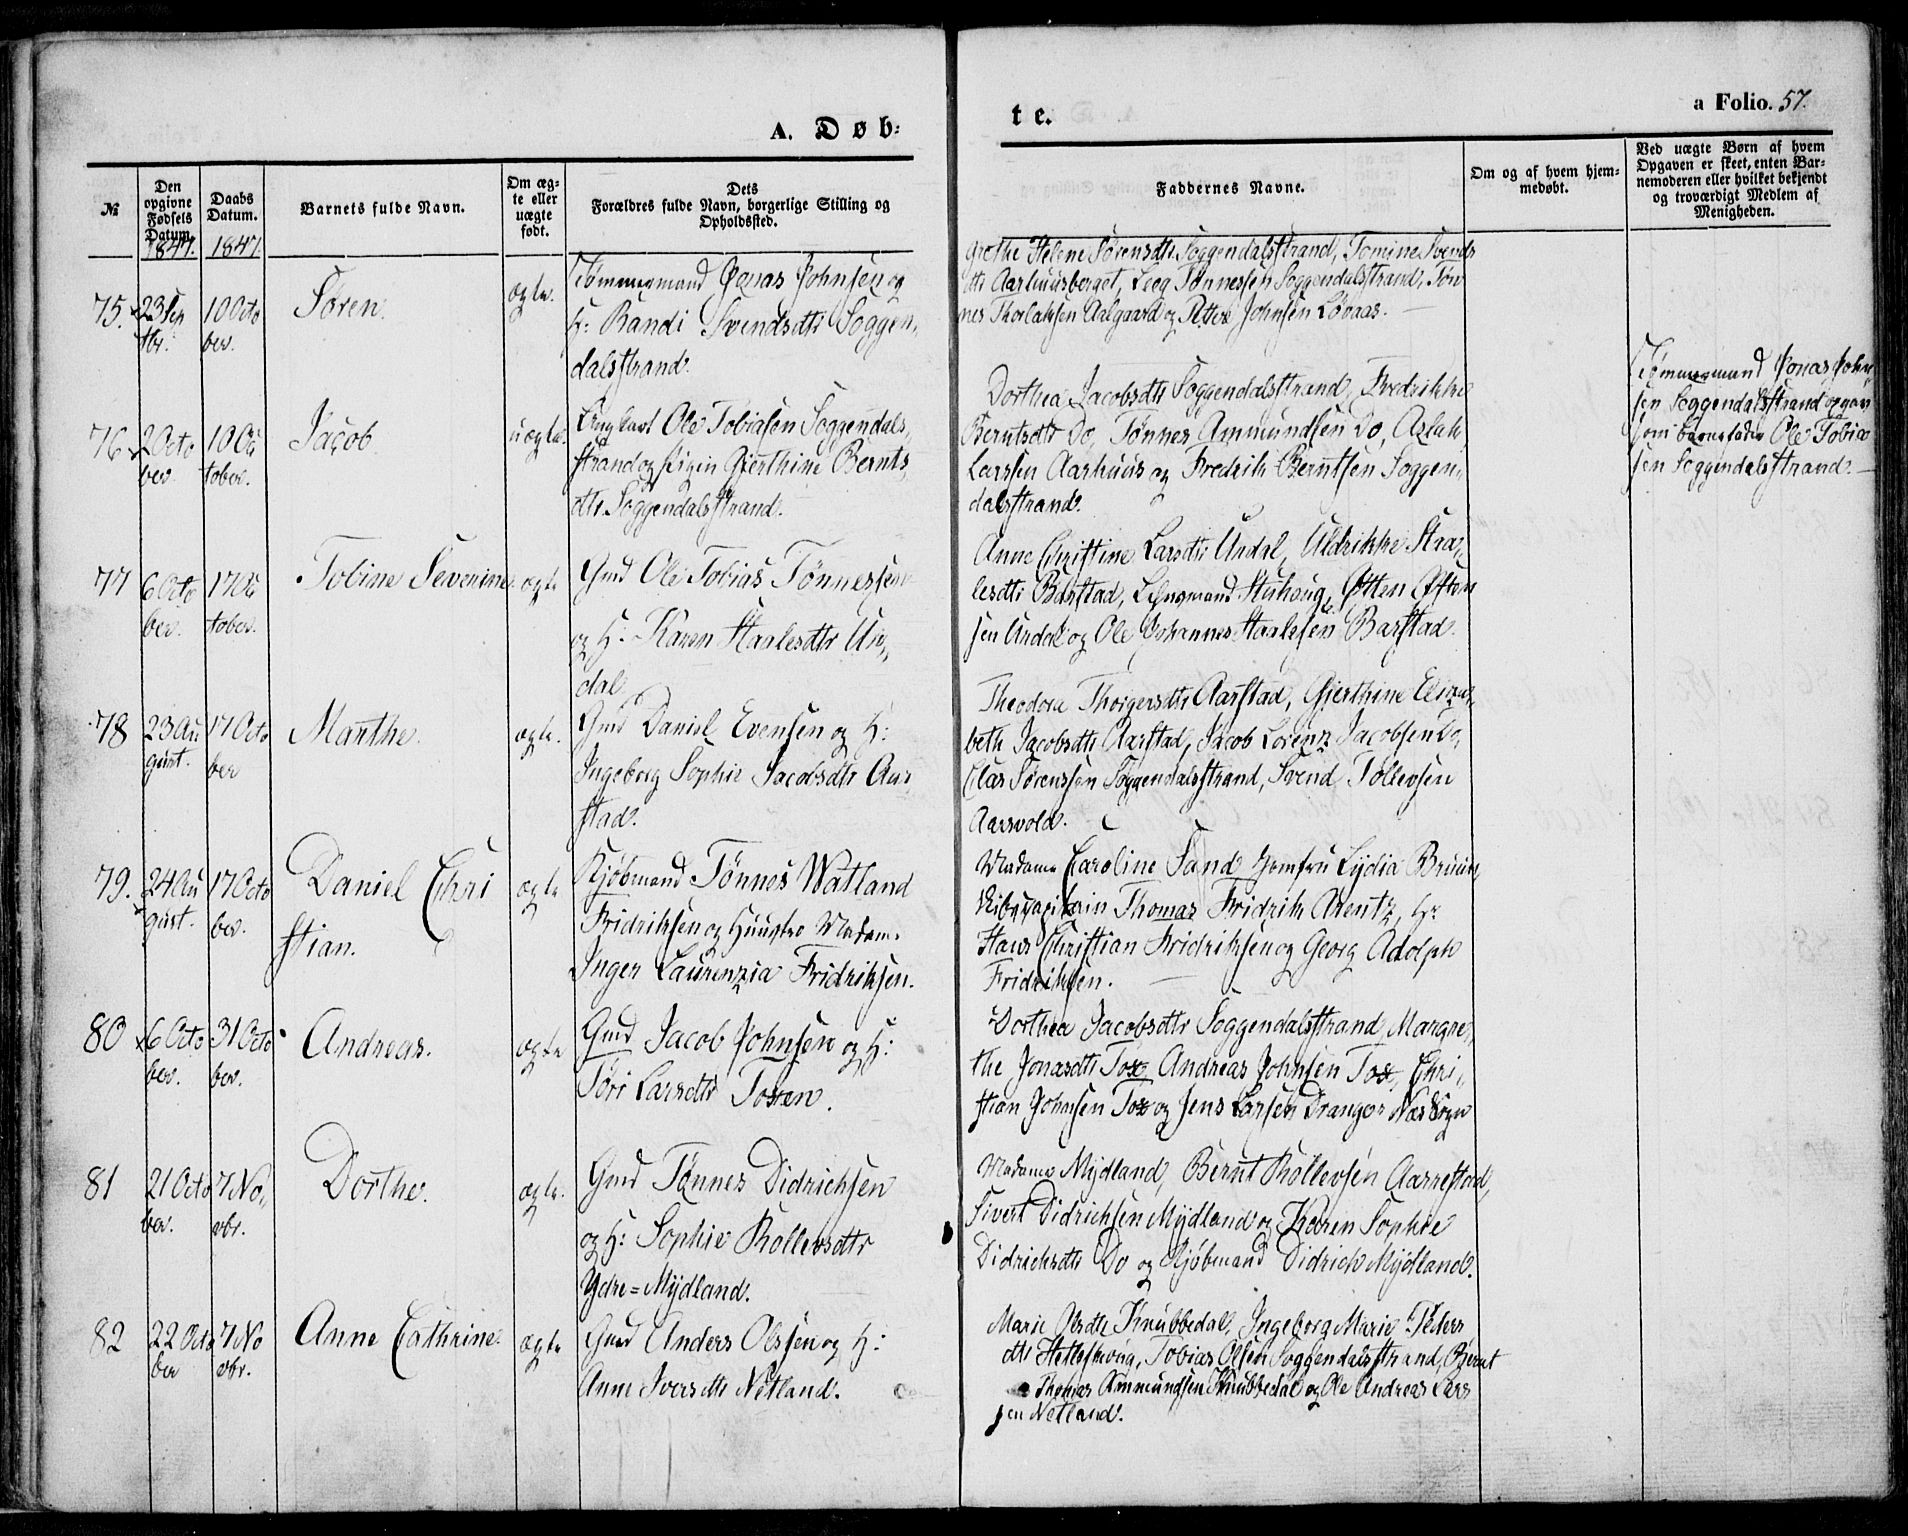 A. Døb-
te.
a Folio. 57.
№
Den opgivne Fødsels Datum.
Daabs Datum.
Barnets fulde Navn.
Om ægte eller uægte født.
Dets Forældres fulde Navn, borgerlige Stilling og Opholdssted.
Faddernes Navne.
Om og af hvem hjemmedøbt.
Ved uægte Børn af hvem Opgaven er skeet, enten Barnemoderen eller hvilket bekjendt og troværdigt Medlem af Menigheden.
1847. 1847.
75. 23 Sep
tbr.
10 Octo
ber.
Søren.
ægte.
Tømmermand Jonas Johnsen og
H: Randi Svendsdtr Soggen,
dalsstrand.
Grethe Helene Sørensdtr Soggendalsstrand, Tomine Svends
dtr Aarhuusberget, Tønnessen Soggendalsstrand, Tøn
nes Thorlaksen Aalgaard og Petter Johnsen Løvaas.
76 2 Octo
ber.
10 Oc
tober.
Jacob.
uægte.
Ungkarl Ole Tobiasen Soggendals,
strand og Pigen Gjerthine Bernts,
dtr Soggendalsstrand.
Dorthea Jacobsdtr Soggendalsstrand, Fredrikke
Berntsdtr Do, Tønnes Ammundsen Do, Aslak
Larssen Aarhuus og Fredrik Berntsen Soggen,
dalsstrand.
Tømmermand Jonas John
sen Soggendalsstrand opgav
som barnefader Ole Tobia
sen Soggendalsstrand.
77 6 Octo
ber.
17 Oc
tober.
Tobine Severine.
ægte
Gmd Ole Tobias Tønnessen
og H: Karen Staalesdtr Ur,
dal
Anne Christine Larsdtr Urdal, Uldrikke Staa,
lesdtr Barstad, Lehnsmand Stuhoug, Osten Osten
sen Urdal og Ole Johannes Staalesen Barstad.
78 23 Au
gust.
17 Octo
ber
Marthe.
ægte.
Gmd Daniel Evensen og H:
Ingeborg Sophie Jacobsdtr Aar
stad.
Theodora Thorgersdtr Aarstad, Gjerthine Eliza,
beth Jacobsdtr Aarstad, Jacob Lorenz Jacobsen Do,
Clas Sørenssen Soggendalsstrand, Svend Tollevsen
Aarsvold.
79. 24 Au
gust.
17 Octo
ber.
Daniel Chri
stian.
ægte
Kjøbmand Tønnes Watland
Fridriksen og Huustro Madam
Inger Laurenzia Fridriksen.
Madame Caroline Sand Jomfru Lydia Bruun,
Thomas Fridrik Arentz, Hr
Hans Christian Fridriksen og Georg Adolph
Fridriksen.
80 6 Octo
ber.
31 Octo
ber.
Andreas.
ægte
Gmd Jacob Johnsen og H:
Tøri Larsdtr Toxen.
Dorthea Jacobsdtr Soggendalsstrand, Margre,
the Jonasdtr Tox, Andreas Johnsen Tox, Chri,
stian Johnsen Tox og Jens Larsen Dranger Næs Sogn
81 21 Octo
ber.
7 No,
vbr.
Dorthe.
ægte.
Gmd Tønnes Didrichsen
og H: Sophie Rollevsdtr
Ydre=Mydland.
Madame Mydland, Bernt Rollevsen Aarrestad,
Sivert Didrichsen Mydland og Karen Sophie
Didrichsdtr Do og Kjøbmand Didrich Mydland.
82 22 Octo
ber
7 No
vbr.
Anne Cathrine.
ægte
Gmd Anders Olssen og H:
Anne Iversdtr Netland.
Marie Olsdtr Knubbedal, Ingeborg Marie Peders
dtr Tobias Olsen Soggendalsstrand, Bernt
Thomas Ammundsen Knubbedal og Ole Andreas Lars
sen Netland.